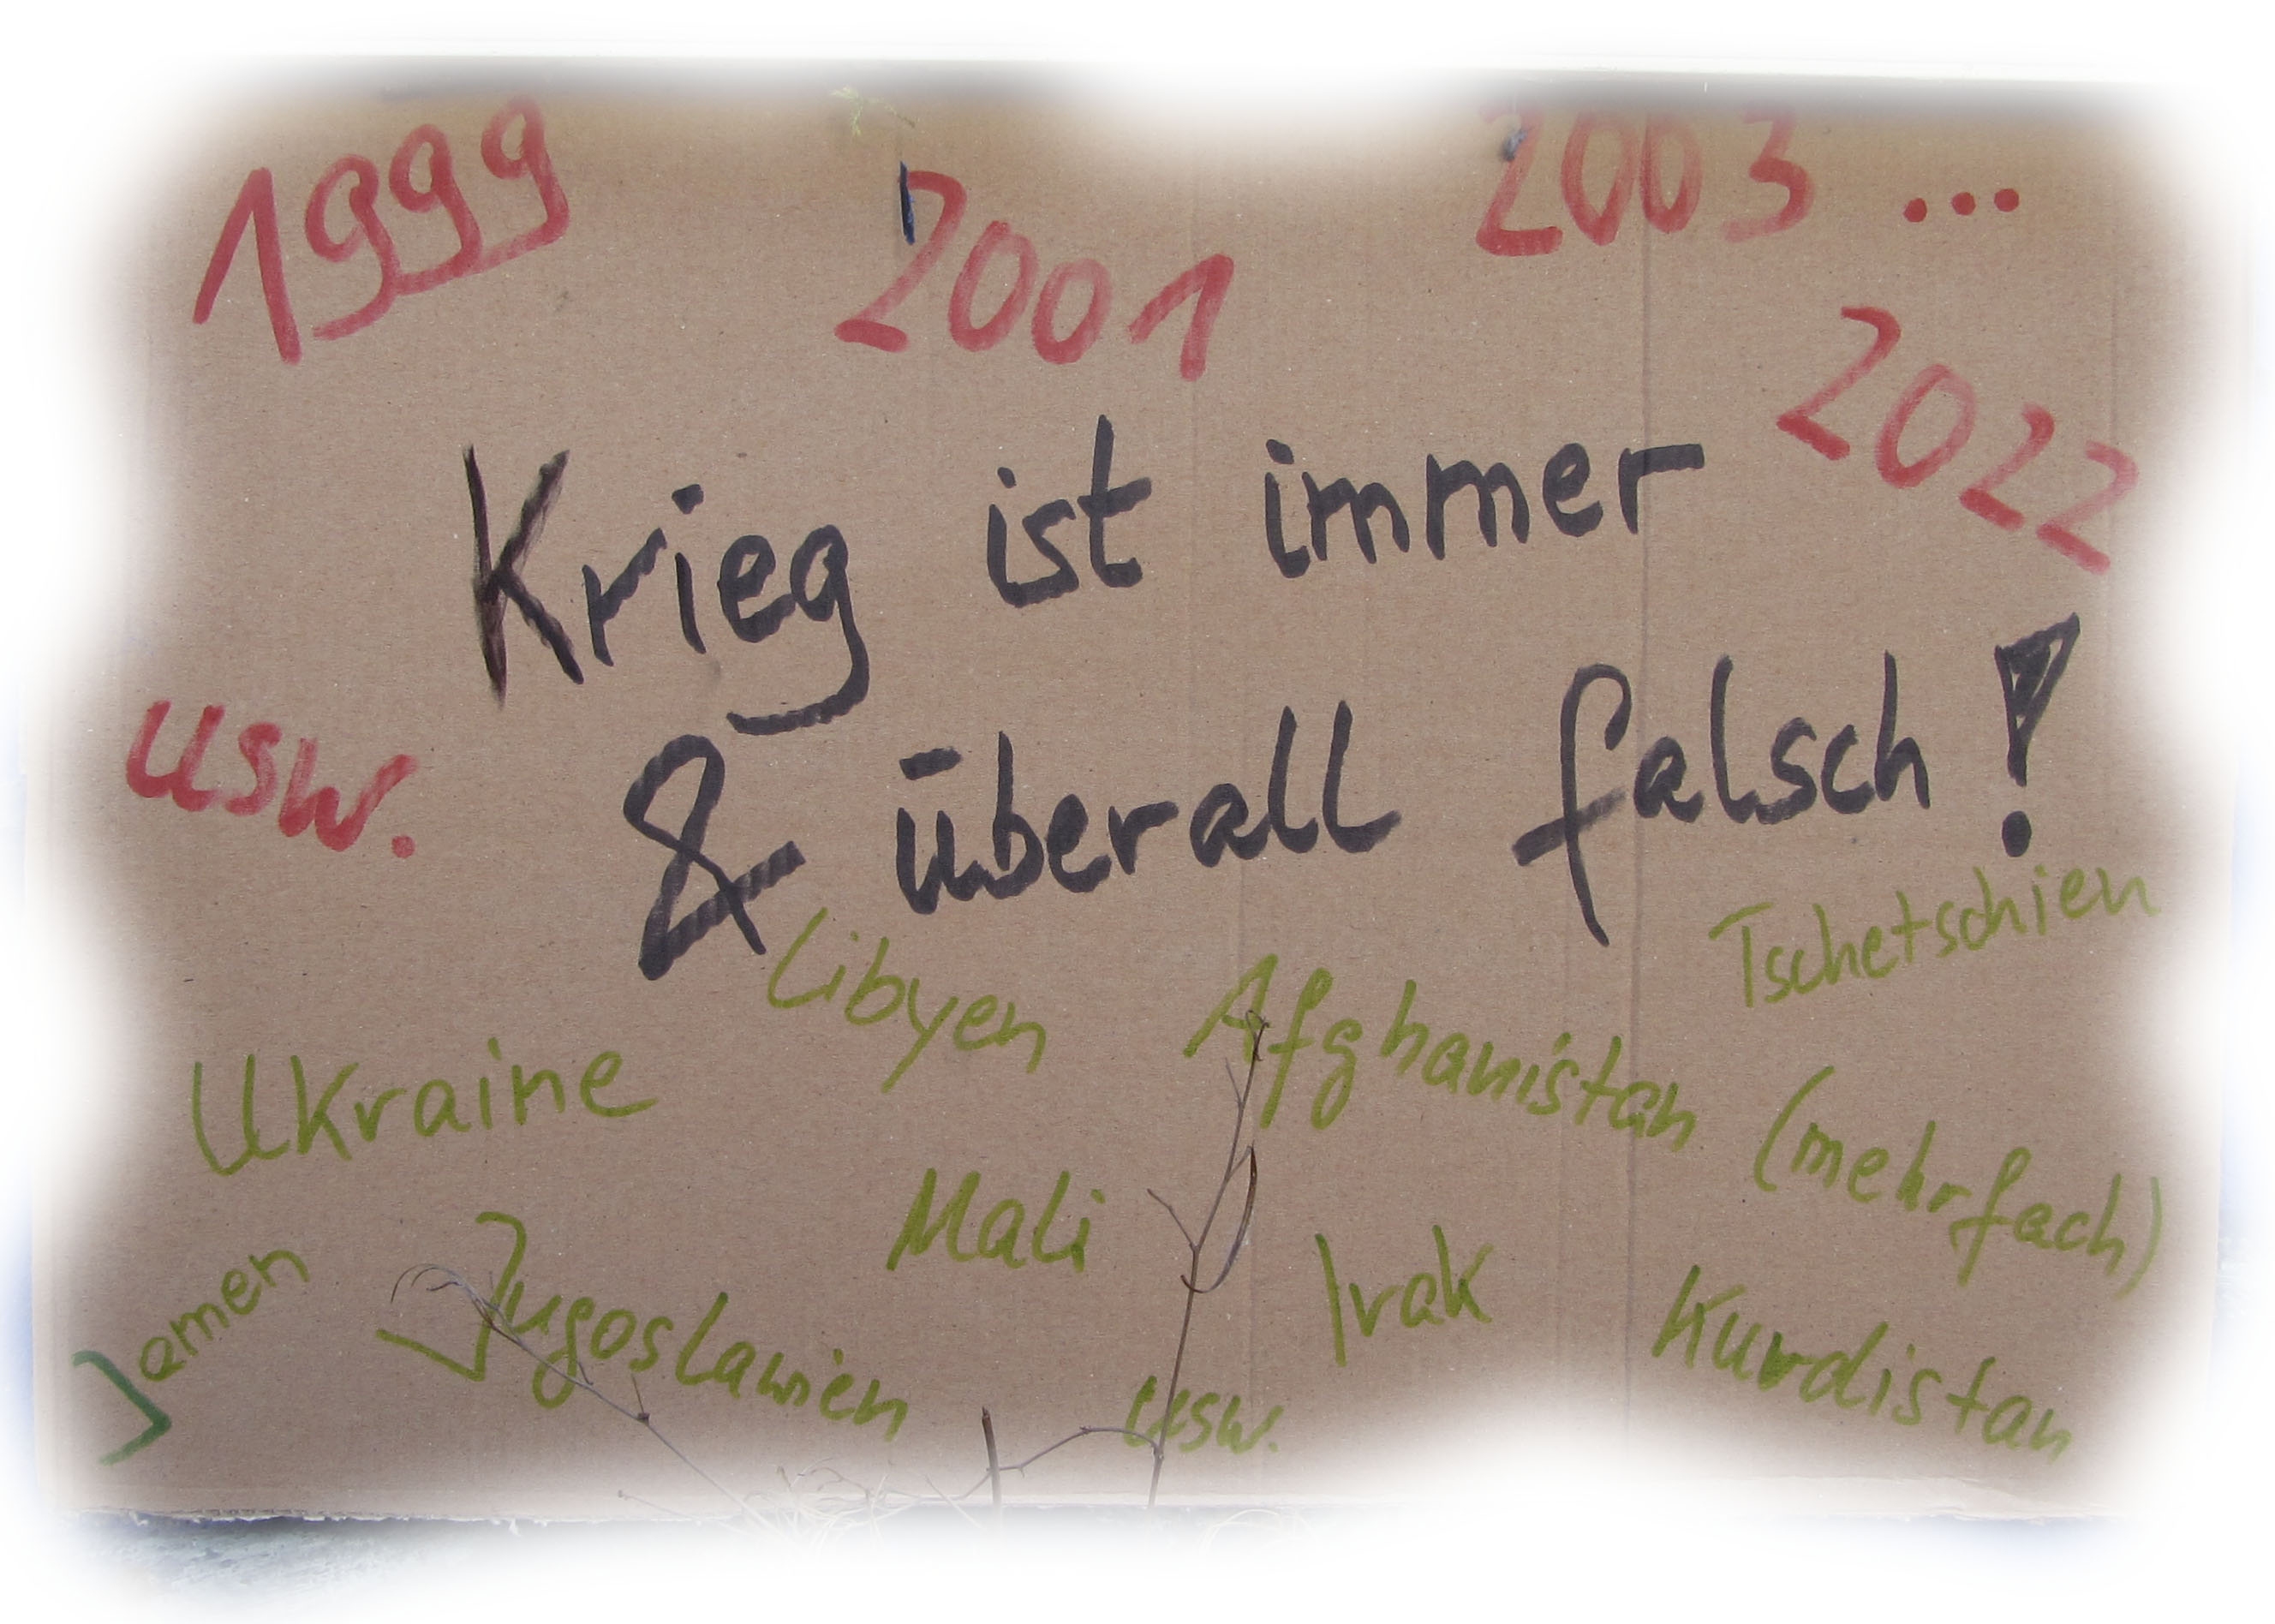 1999
2001
2003 ...
2022
Krieg ist immer
& überall falsch!
usw.
Tschetschien
Libyen
Afghanistan (mehrfach)
Ukraine
Mali
Irak
Kurdistan
Jemen
Jugoslawien
usw.